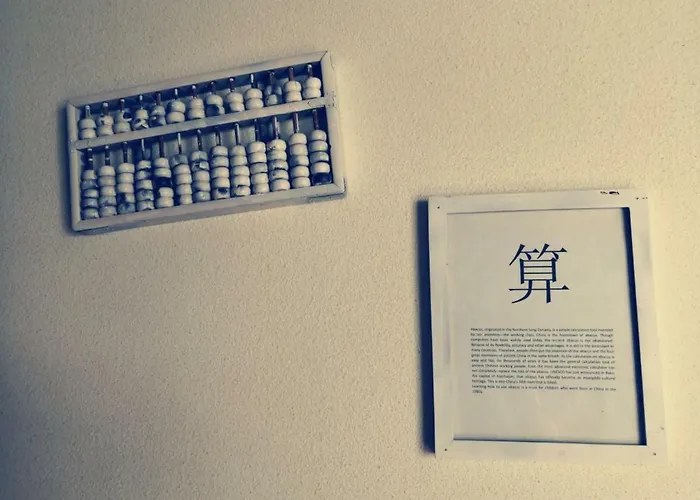 算
Abacus, originated in the Northern Song Dynasty, is a simple calculation tool invented
by our ancestors—the working class. China is the hometown of abacus. Though
computers have been widely used today, the ancient abacus is not abandoned.
Because of its flexibility, accuracy and other advantages, it is still in the ascendant in
many countries. Therefore, people often put the invention of the abacus and the four
great inventions of ancient China in the same breath. As the calculation on abacus is
easy and fast, for thousands of years it has been the general calculation tool of
ancient Chinese working people. Even the most advanced electronic calculator can
not completely replace the role of the abacus. UNESCO has just announced in Baku,
the capital of Azerbaijan, that abacus has officially become an intangible cultural
heritage. This is also China's 30th
Learning how to use abacus is a must for children who were born in China in the
1980s.